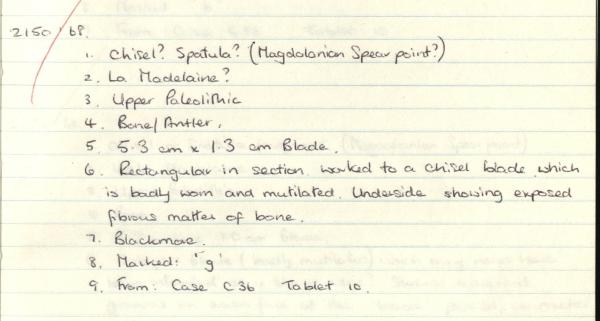 2150/68.
1. Chisel? Spatula? (Magdalanian Spear point?)
2. La Madelaine?
3. Upper Paleolithic
4. Bone/Antler.
5. 5.3 cm x 1.3 cm Blade.
6. Rectangular in section, worked to a chisel blade which
is badly worn and mutilated. Underside showing exposed
fibrous matter of bone.
7. Blackmore.
8. Marked: 'g'
9. From: Case C36 Tablet 10.